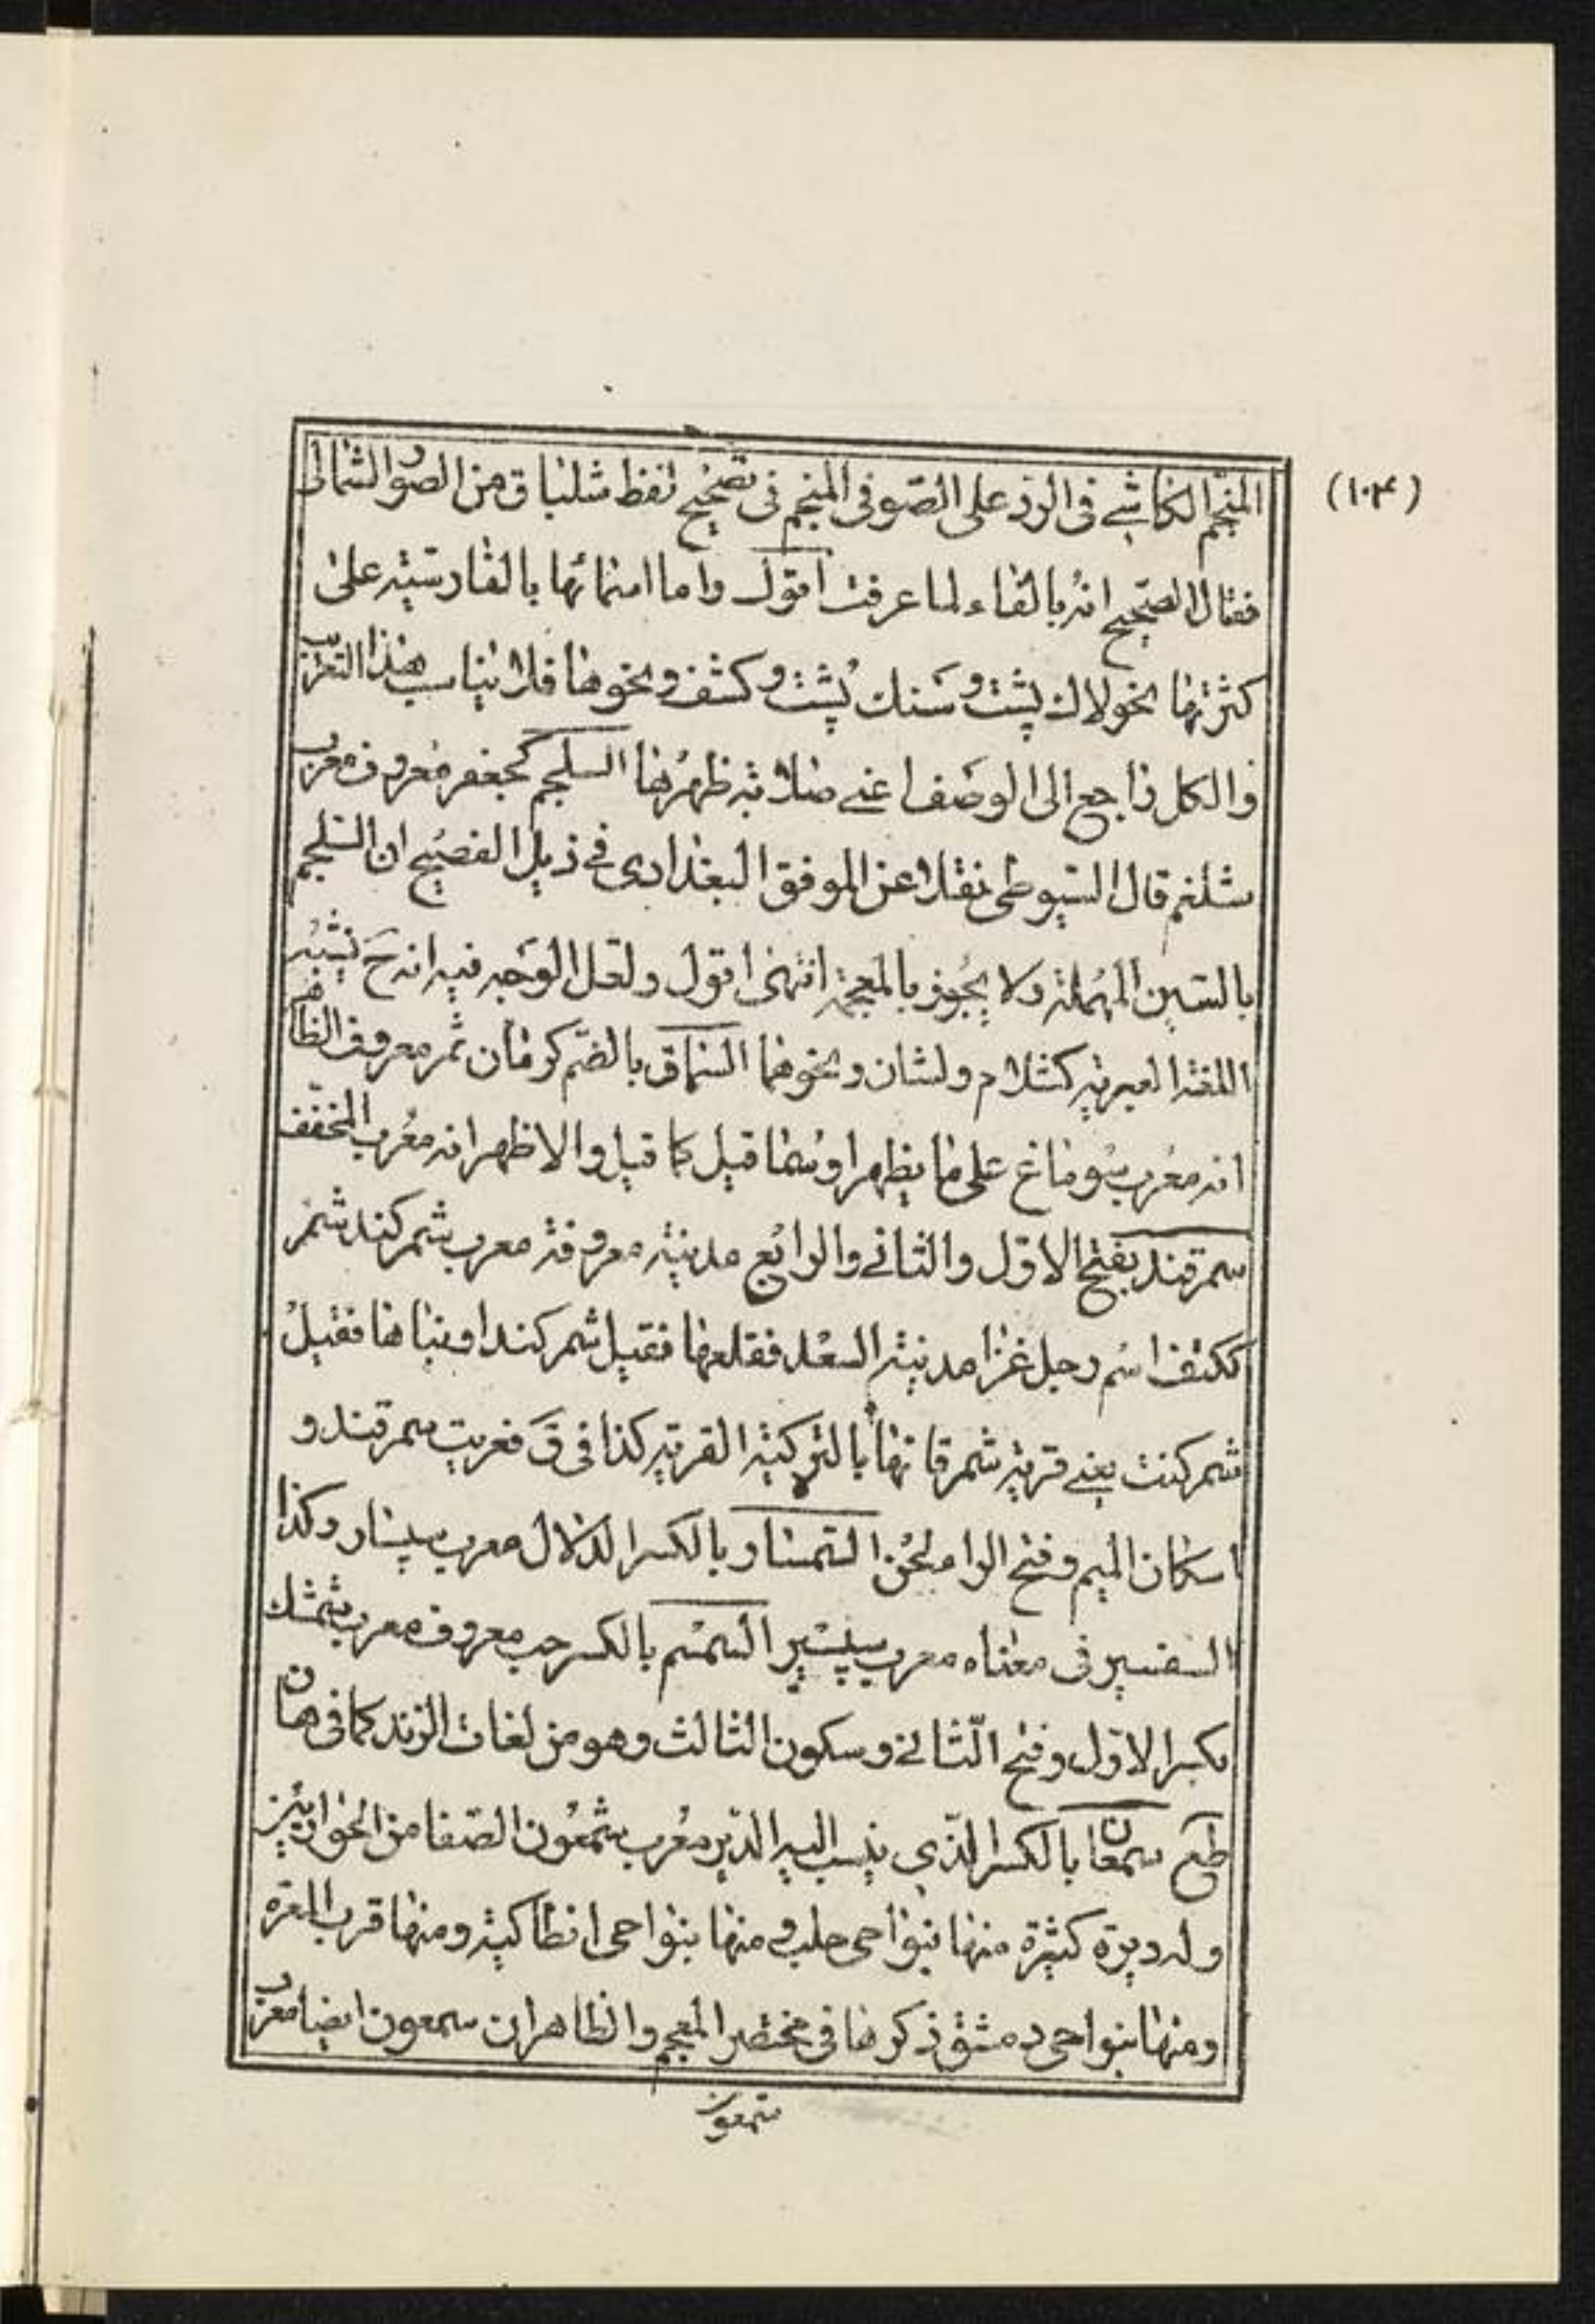 (١٠٤)
المنجّم الكاشي في الردّ على الصّوفي المنجم في تصحيح لفظ شلباق من الصور الشمالي
فقال الصّحيح انه بالفاء لما عرفت اقول واما اسمائها بالفارسيّة على
كثرتها نحو لاك پشت و سَنك پُشت و كشف ونحوها فلا يناسب هذا التعريب
والكل راجع الى الوصف اعني صلابة ظهرها السلجم كجعفر معروف معرب
شلغم قال السّيوطي نقلا عن الموفق البغدادي في ذيل الفصيح ان السّلجم
بالسّين المُهملة ولا يجُوز بالمعجمة انتهى اقول ولعل الوَجه فيه انه حَ يشبه
اللغة العبرية كشلام ولشان ونحوهما السّماق بالضّم كرمّان ثمر معروف الظاهر
انه معُرب سُوماغ على ما يظهر اوسُما قيل كما قيل والاظهر انه معُرب المخفّف
سمرقند بفتح الاوّل والثاني والرابع مدينة معروفة معرب شمركند شمر
ككتف اسم رجل غزا مدينة السغد فقلعها فقيل شمركند او بناها فقيل
شمركنت يعني قرية شمر فانها بالتركية القرية كذا في قَ فعربت سمرقند و
اسكان الميم وفتح الراء لحن السّمسار بالكسر الدّلال معرب سپسار وكذا
السفسير في معناه معرب سپسير السّمسم بالكسر حب معروف معرب شمشك
بكسر الاوّل وفتح الثّاني وسكون الثالث وهو من لغات الزند كما في هان
طع سمعان بالكسر الذّي ينسب اليه الدّير معُرب شمعُون الصّفا من الحواريّين
وله ديرة كثيرة منها بنواحي حلب ومنها بنواحي انطاكية ومنها قرب المعره
ومنها بنواحي دمشق ذكرها في مختصر المعجم والظاهر ان سمعون ايضا معرب
شمعون